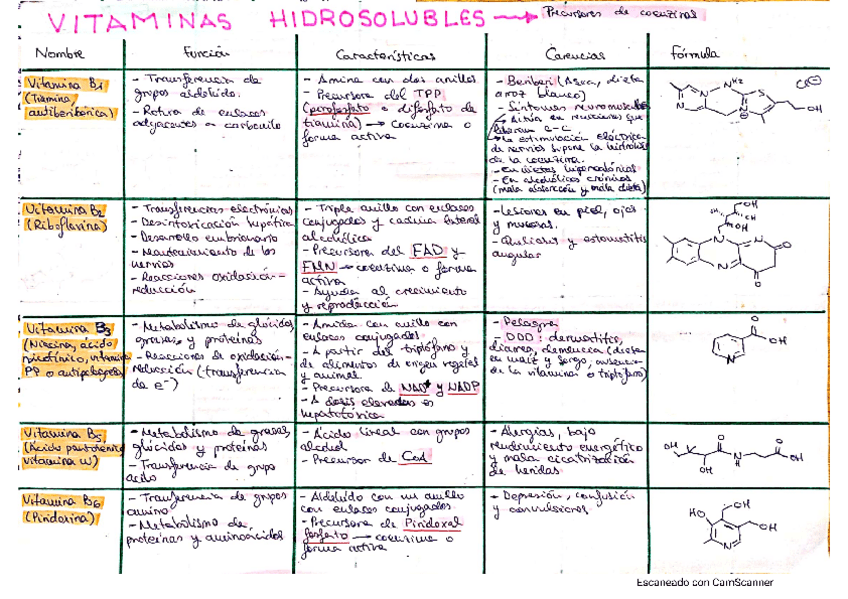 VITAMINAS HIDROSOLUBLES → Precursores de coenzimas
Nombre
Función
Características
Carencias
Fórmula
Vitamina B1
(Tiamina,
antiberibérica)
- Transferencia de
grupos aldehído.
- Rotura de enlaces
adyacentes a carbonilo
- Amina con dos anillos
- Precursora del TPP
(pirofosfato o difosfato de
tiamina) → coenzima o
forma activa
- Beriberi (Asia, dieta
arroz blanco)
- Síntomas neuromusculares
Actúa en reacciones que
liberan C-C
→ la estimulación eléctrica
de nervios supone la hidrólisis
de la coenzima.
- En dietas
- En alcohólicos crónicos
(mala absorción y mala dieta)
NH2
Cl⊖
N
N
N
S
OH
Vitamina B2
(Riboflavina)
- Transferencias electrónicas
- Desintoxicación hepática
- Desarrollo embrionario
- Mantenimiento de los
nervios
- Reacciones oxidación-
reducción
- Triple anillo con enlaces
conjugados y cadena lateral
alcohólica
- Precursora del FAD y
FMN → coenzima o forma
activa
- Ayuda al crecimiento
y reproducción
- Lesiones en piel, ojos
y mucosas.
- Queliosis y estomatitis
angular
OH
OH
N
N
N
O
O
Vitamina B3
(Niacina, ácido
nicotínico, vitamina
PP o antipelagra)
- Metabolismo de glúcidos,
grasas y proteínas
- Reacciones de oxidación-
reducción (transferencia
de e-)
- Amida con anillo con
enlaces conjugados.
- A partir del triptófano y
de alimentos de origen vegetal
y animal
- Precursora de NAD+ y NADP
- A dosis elevadas es
hepatotóxica
- Pelagra
- DDD: dermatitis,
diarrea, demencia (dieta
en maíz y sorgo, ausencia
en la vitamina o triptófano)
O
OH
N
Vitamina B5
(Ácido pantoténico
vitamina W)
- Metabolismo de grasas,
glúcidos y proteínas
- Transferencia de grupo
acilo
- Ácido lineal con grupos
alcohol
- Precursor de CoA
- Alergias, bajo
rendimiento energético
y mala cicatrización
de heridas
OH
O
O
OH
N
H
OH
Vitamina B6
(Piridoxina)
- Transferencia de grupos
amino
- Metabolismo de
proteínas y aminoácidos
- Aldehído con un anillo
con enlaces conjugados
- Precursora de Piridoxal
fosfato → coenzima o
forma activa
- Depresión, confusión
y convulsiones
HO
OH
OH
N
Escaneado con CamScanner